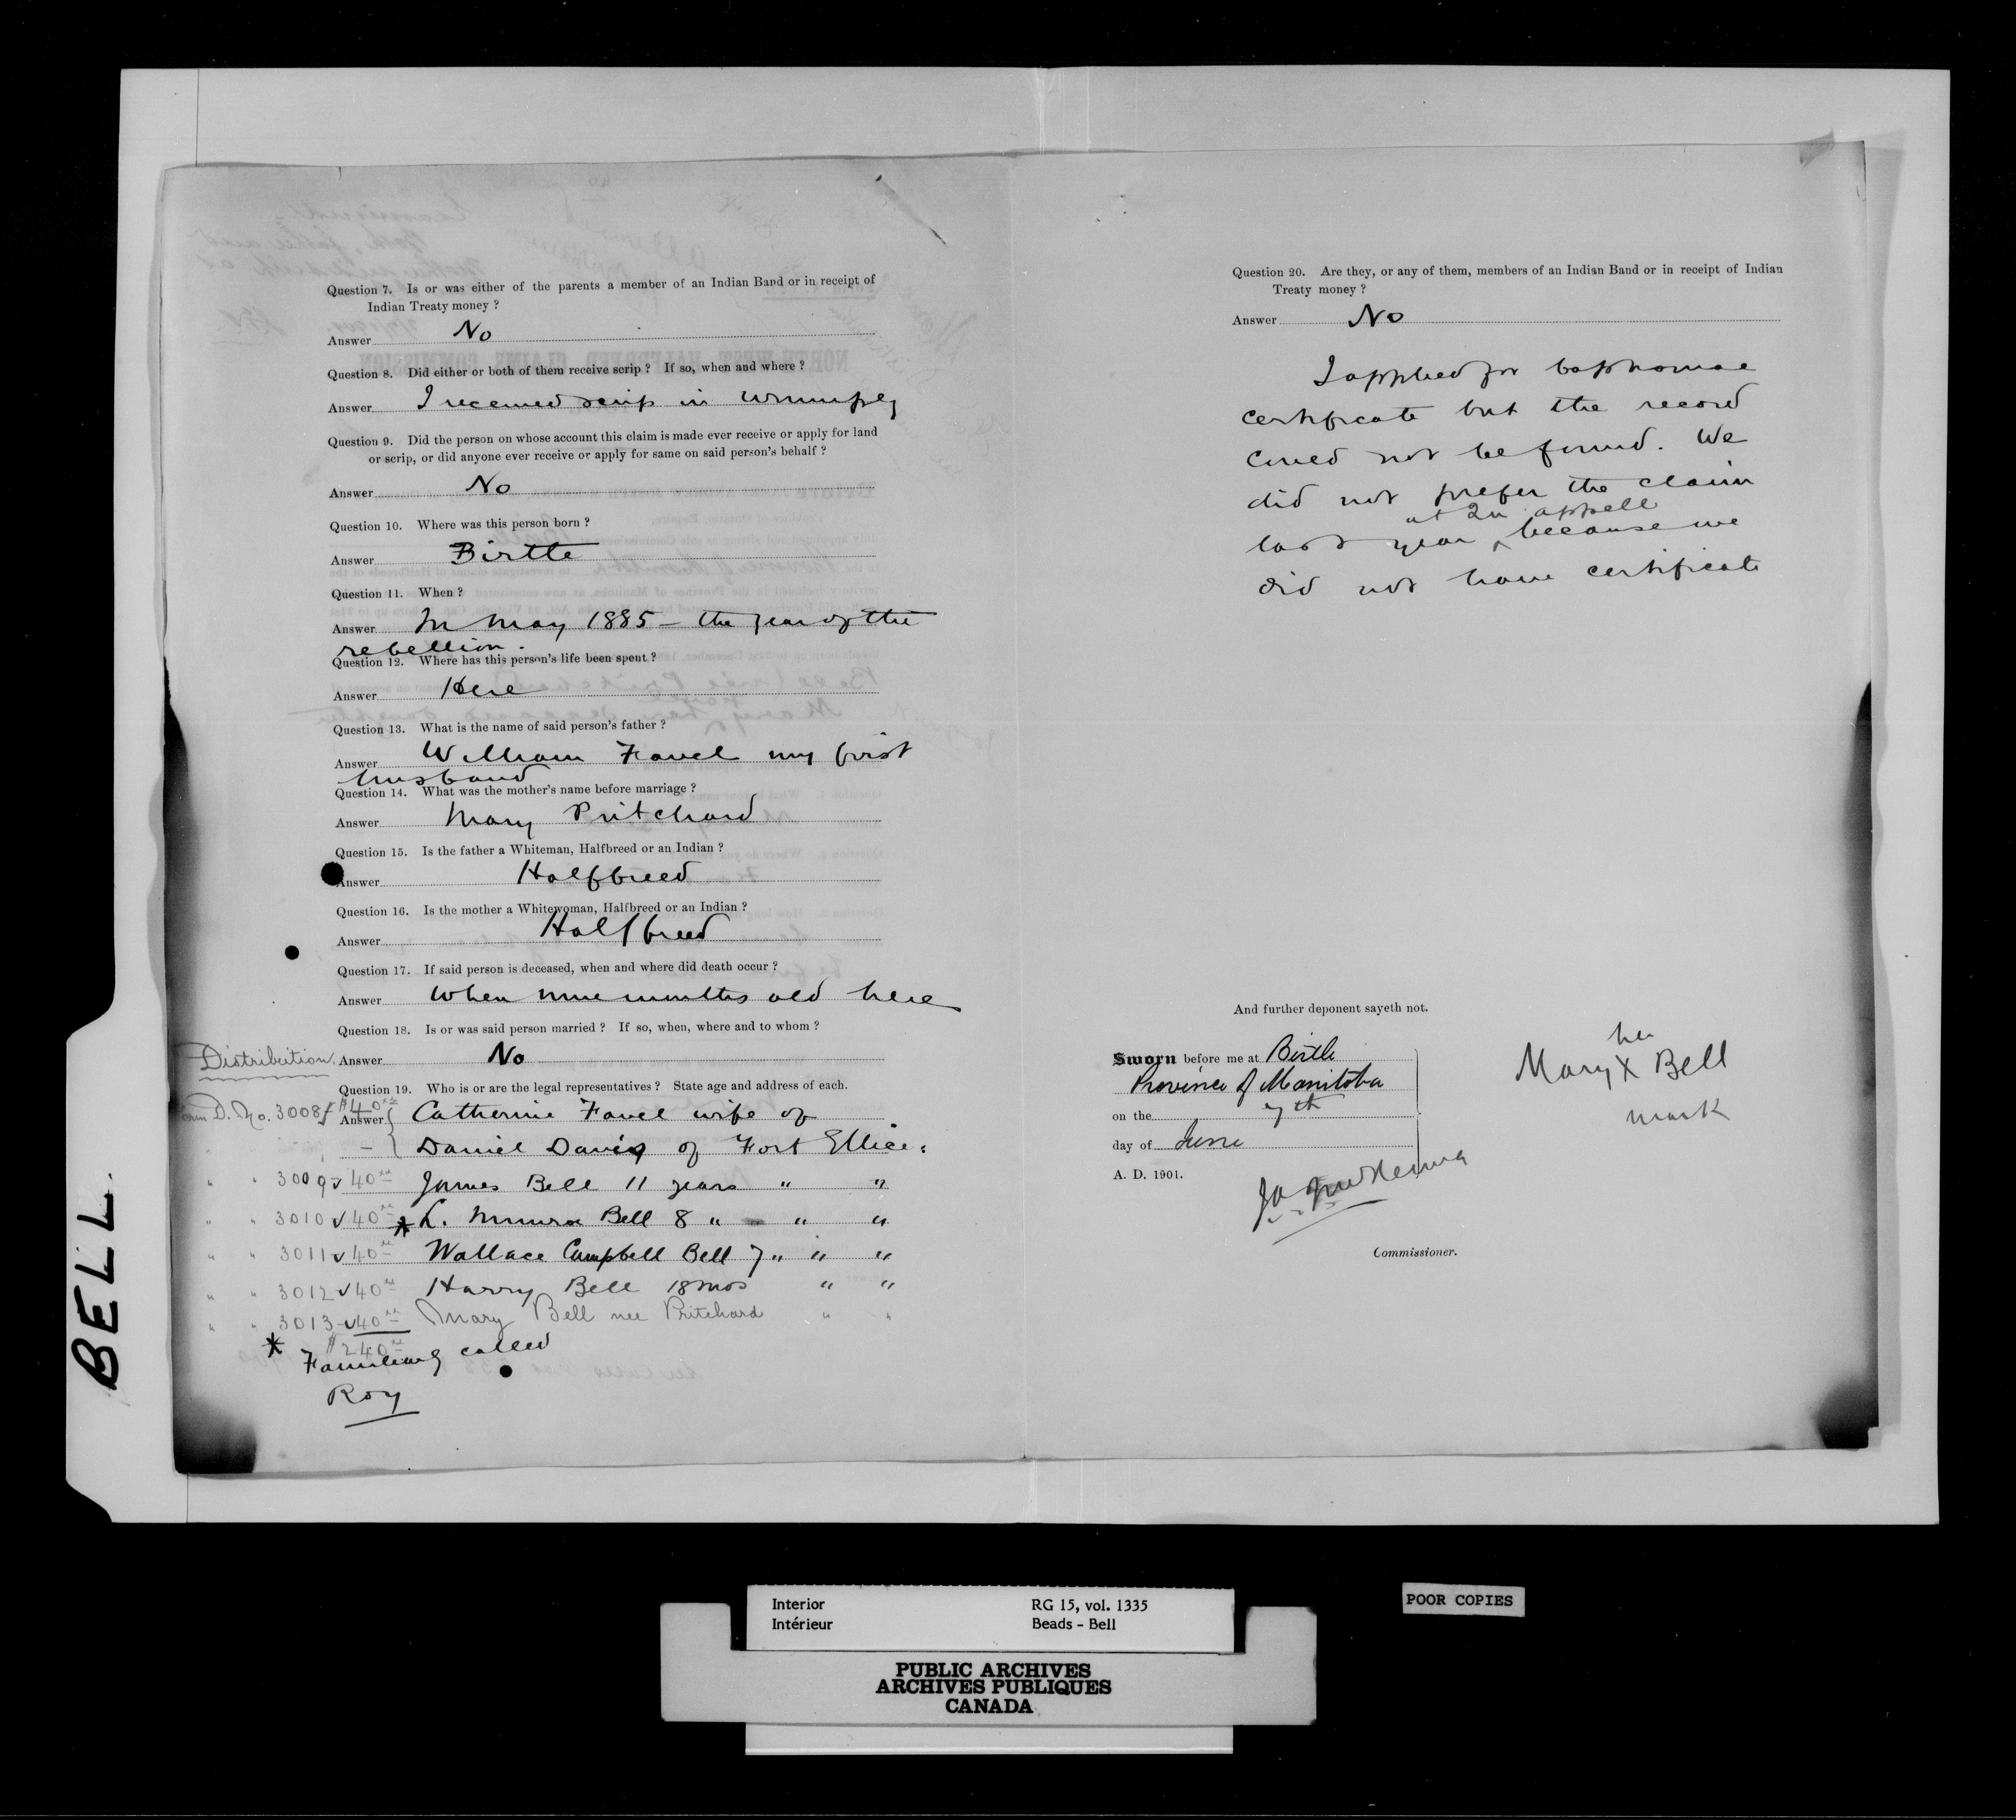 Question 7. Is or was either of the parents a member of an Indian Band or in receipt of
Indian Treaty money ?
Answer No
Question 8. Did either or both of them receive scrip ? If so, when and where ?
Answer I received scrip in Winnipeg
Question 9. Did the person on whose account this claim is made ever receive or apply for land
or scrip, or did anyone ever receive or apply for same on said person's behalf ?
Answer No
Question 10. Where was this person born ?
Answer Birtle
Question 11. When ?
Answer In May 1885 - the year of the
rebellion.
Question 12. Where has this person's life been spent ?
Answer Here
Question 13. What is the name of said person's father ?
Answer William Favel my first
husband
Question 14. What was the mother's name before marriage ?
Answer Mary Pritchard
Question 15. Is the father a Whiteman, Halfbreed or an Indian ?
Answer Halfbreed
Question 16. Is the mother a Whitewoman, Halfbreed or an Indian ?
Answer Halfbreed
Question 17. If said person is deceased, when and where did death occur ?
Answer When nine months old here
Question 18. Is or was said person married ? If so, when, where and to whom ?
Distribution. Answer No
Question 19. Who is or are the legal representatives ? State age and address of each.
Form D. No. 3008 $40 Answer Catherine Favel wife of
Daniel Davis of Fort Ellice.
" " 3009 ✓ 40 James Bell 11 years " "
" " 3010 ✓ 40 * L. Munroe Bell 8 " " "
" " 3011 ✓ 40 Wallace Campbell Bell 7 " " "
" " 3012 ✓ 40 Harry Bell 18 mos " "
" " 3013 ✓ 40 Mary Bell nee Pritchard " "
$240
* Familiarly called
Roy
Question 20. Are they, or any of them, members of an Indian Band or in receipt of Indian
Treaty money ?
Answer No
I applied for baptismal
certificate but the record
could not be found. We
did not prefer the claim
at Qu'appelle
last year ^ because we
did not have certificate
And further deponent sayeth not.
Sworn before me at Birtle
Province of Manitoba
on the 7th
day of June
A. D. 1901.
Commissioner.
her
Mary X Bell
mark
BELL.
Interior RG 15, vol. 1335
Intérieur Beads - Bell
PUBLIC ARCHIVES
ARCHIVES PUBLIQUES
CANADA
POOR COPIES